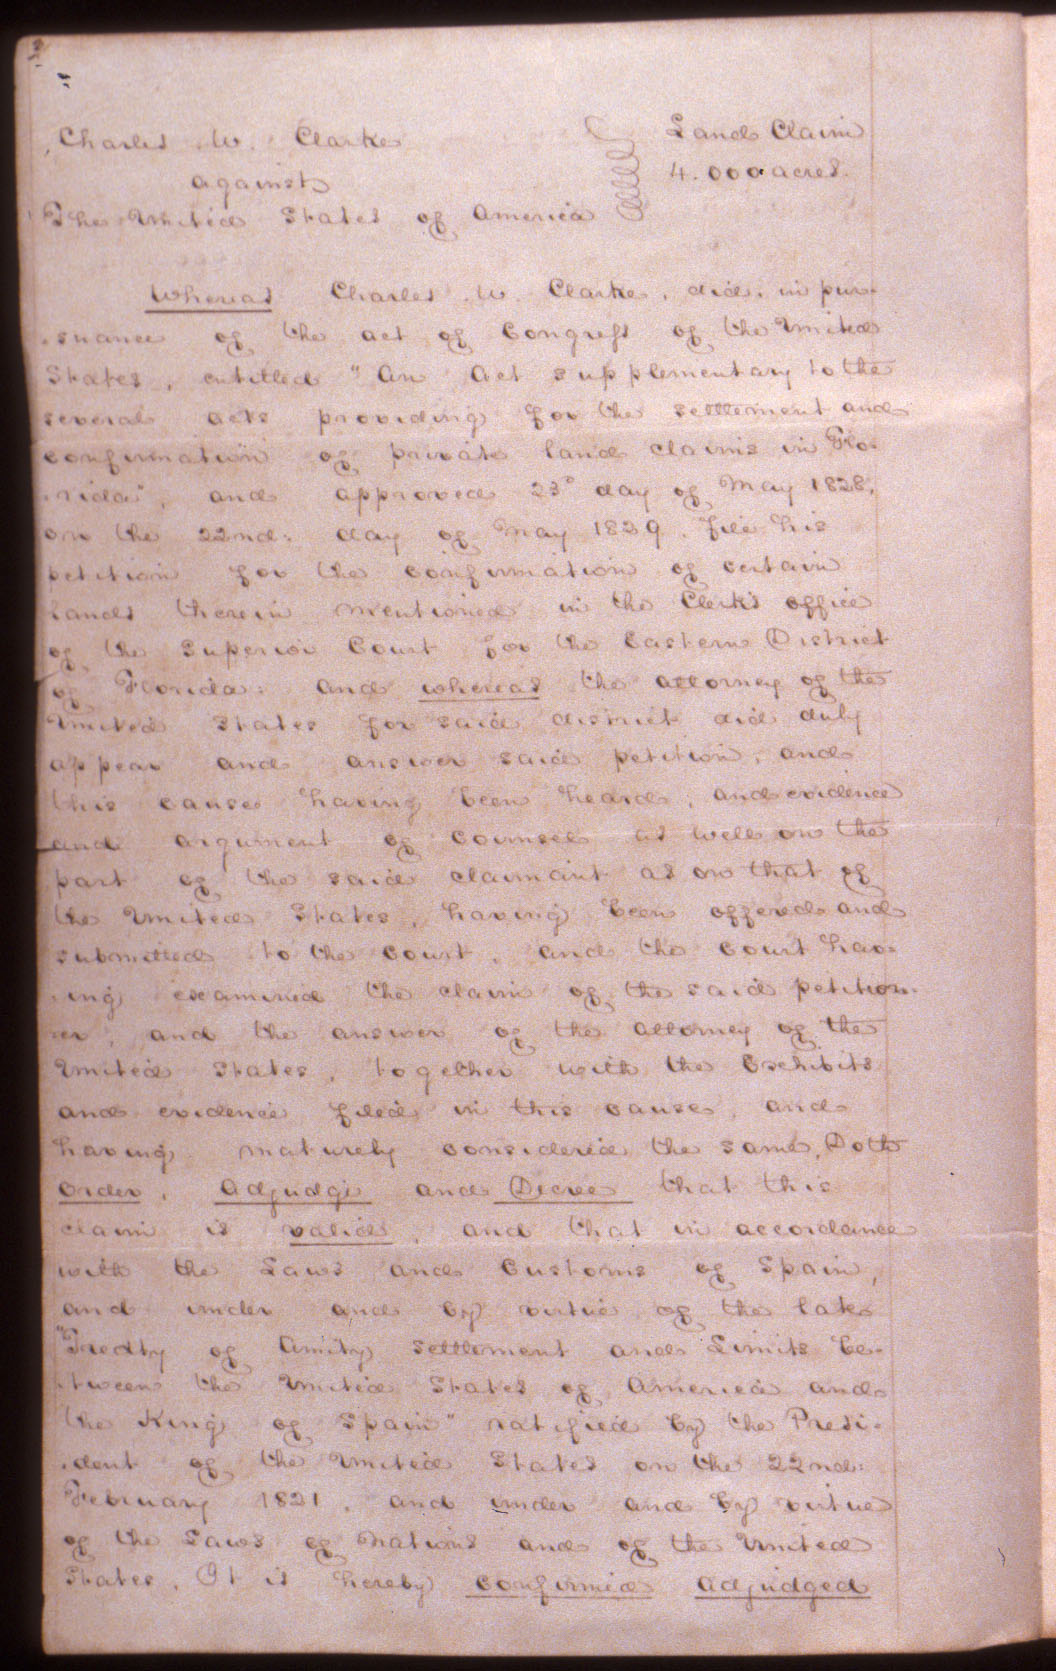 Charles W. Clarke
against
The United States of America
Land Claim
4.000 acres.
Whereas Charles W. Clarke, did, in pur-
-suance of the act of Congress of the United
States, entitled "An Act supplementary to the
several acts providing for the settlement and
confirmation of private land claims in Flo-
-rida", and approved 23d day of May 1828,
on the 22nd: day of May 1829. file his
petition for the confirmation of certain
lands therein mentioned in the Clerk's office
of the Superior Court for the Eastern District
of Florida: and whereas the attorney of the
United States for said district did duly
appear and answer said petition, and
this cause having been heard, and evidence
and argument of counsel as well on the
part of the said claimant as on that of
the United States, having been offered and
submitted to the court, and the court hav-
-ing examined the claim of the said petition-
-er, and the answer of the attorney of the
United States, together with the Exhibits
and evidence filed in this cause, and
having maturely considered the same, Doth
order, Adjudge and Decree that this
claim is valid, and that in accordance
with the Laws and Customs of Spain,
and under and by virtue of the late
"Treaty of Amity settlement and Limits be-
-tween the United States of America and
the King of Spain" ratified by the Presi-
-dent of the United States on the 22nd:
February 1821, and under and by virtue
of the Laws of Nations and of the United
States, It is hereby confirmed adjudged